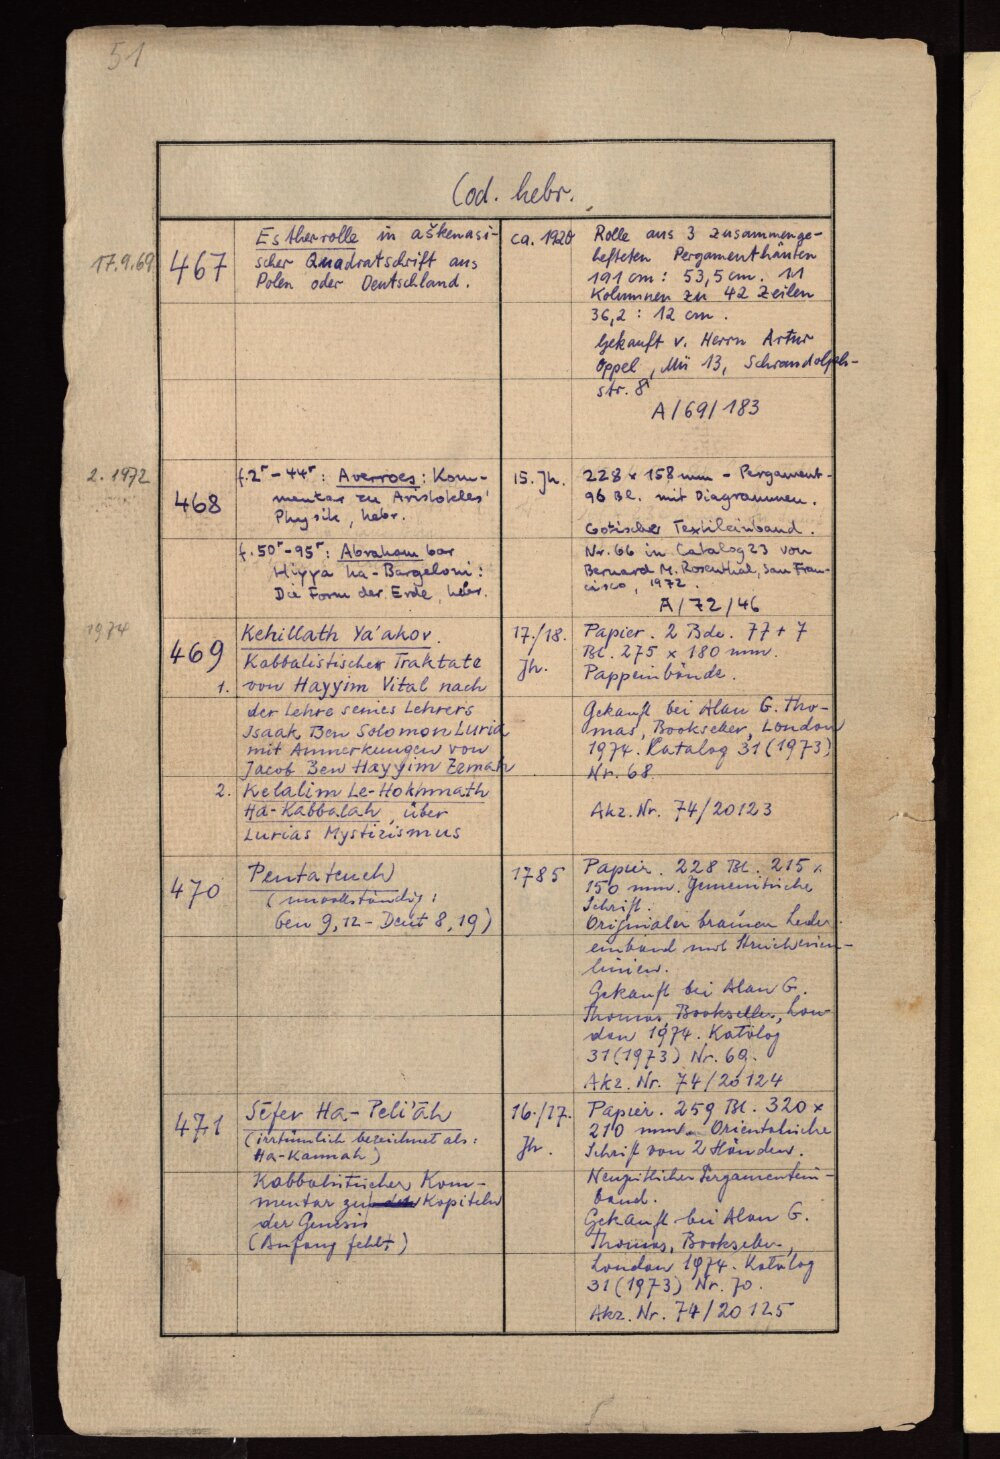 51
Cod. hebr.
17.9.69
467
Estherrolle in aškenasi-
scher Quadratschrift aus
Polen oder Deutschland.
ca. 1920
Rolle aus 3 zusammenge-
hefteten Pergamenthäuten
191 cm : 53,5 cm. 11
Kolumnen zu 42 Zeilen
36,2 : 12 cm.
Gekauft v. Herrn Artur
Oppel, Mü 13, Schraudolph-
str. 8
A/69/183
2. 1972
468
f. 2r - 44r : Averroes : Kom-
mentar zu Aristoteles'
Physik, hebr.
f. 50r - 95r : Abraham bar
Hiyya ha-Bargeloni :
Die Form der Erde, hebr.
15. Jh.
228 x 158 mm - Pergament -
96 Bl. mit Diagrammen.
Gotischer Textileinband.
Nr. 66 in Catalog 23 von
Bernard M. Rosenthal, San Fran-
cisco, 1972.
A/72/46
1974
469
Kehillath Ya'akov.
Kabbalistischer Traktate
1. von Hayyim Vital nach
der Lehre seines Lehrers
Isaak Ben Solomon Luria
mit Anmerkungen von
Jacob Ben Hayyim Zemah
2. Kelalim Le-Hokhmath
Ha-Kabbalah, über
Lurias Mystizismus
17./18.
Jh.
Papier. 2 Bde. 77 + 7
Bl. 275 x 180 mm.
Pappeinbände.
Gekauft bei Alan G. Tho-
mas, Bookseller, London
1974. Katalog 31 (1973)
Nr. 68.
Akz. Nr. 74/20123
470
Pentateuch
(unvollständig :
Gen 9,12 - Deut 8,19)
1785
Papier. 228 Bl. 215 x
150 mm. Jemenitische
Schrift.
Originaler brauner Leder-
einband mit Streicheisen-
linien.
Gekauft bei Alan G.
Thomas, Bookseller, Lon-
don 1974. Katalog
31 (1973) Nr. 69.
Akz. Nr. 74/20124
471
Sēfer Ha-Peli'āh
(irrtümlich bezeichnet als :
Ha-Kannah)
Kabbalistischer Kom-
mentar zu den Kapiteln
der Genesis
(Anfang fehlt)
16./17.
Jh.
Papier. 259 Bl. 320 x
210 mm. Orientalische
Schrift von 2 Händen.
Neuzeitlicher Pergamentein-
band.
Gekauft bei Alan G.
Thomas, Bookseller,
London 1974. Katalog
31 (1973) Nr. 70.
Akz. Nr. 74/20125